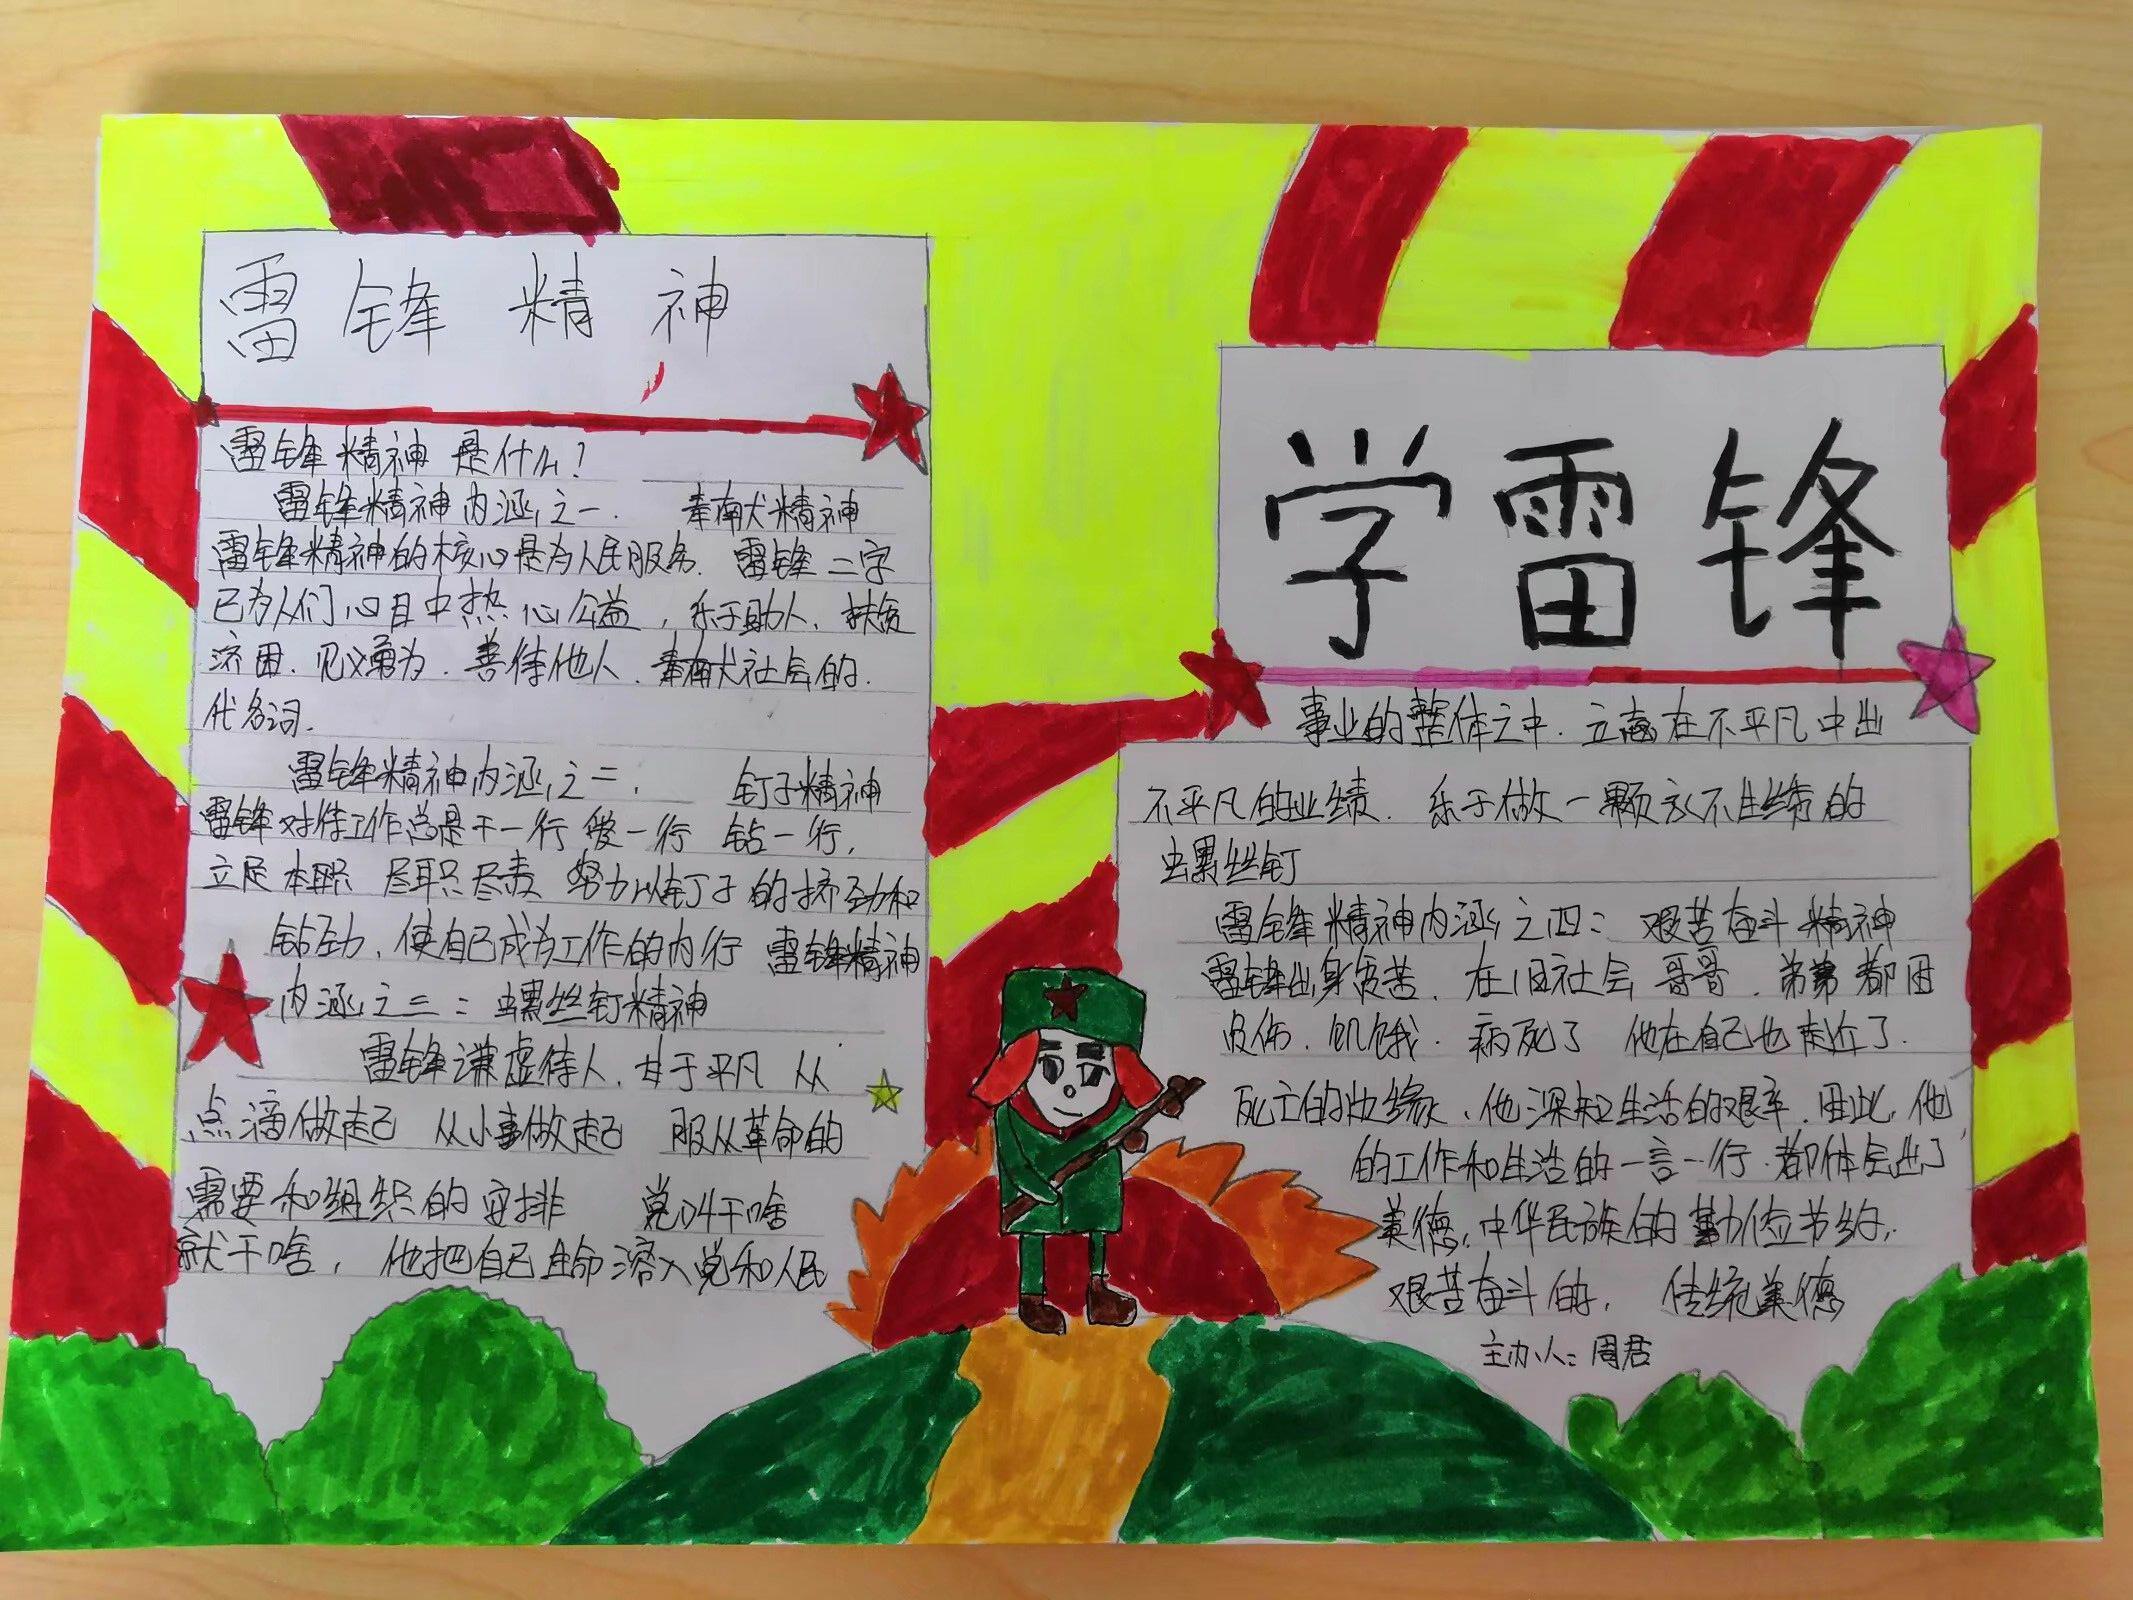 雷锋精神
雷锋精神是什么?
雷锋精神内涵之一. 奉献精神
雷锋精神的核心是为人民服务. 雷锋二字
已为人们心目中热心公益,乐于助人、扶贫
济困、见义勇为、善待他人、奉献社会的.
代名词.
雷锋精神内涵之二. 钉子精神
雷锋对待工作总是干一行 爱一行 钻一行,
立足本职 尽职尽责 努力以钉子的挤劲和
钻劲,使自己成为工作的内行 雷锋精神
内涵之三:螺丝钉精神
雷锋谦虚待人,甘于平凡 从
点滴做起 从小事做起 服从革命的
需要和组织的安排 党叫干啥
就干啥, 他把自己生命溶入党和人民
学雷锋
事业的整体之中. 立志在不平凡中出
不平凡的业绩. 乐于做一颗永不生锈的
螺丝钉
雷锋精神内涵之四:艰苦奋斗精神
雷锋出身贫苦. 在旧社会 哥哥. 弟弟都因
饥饿. 病死了 他在自己也走近了.
死亡的边缘,他深知生活的艰辛.因此,他
的工作和生活的一言一行.都体会出了
美德,中华民族的勤俭节约,
艰苦奋斗的, 传统美德
主办人:周君